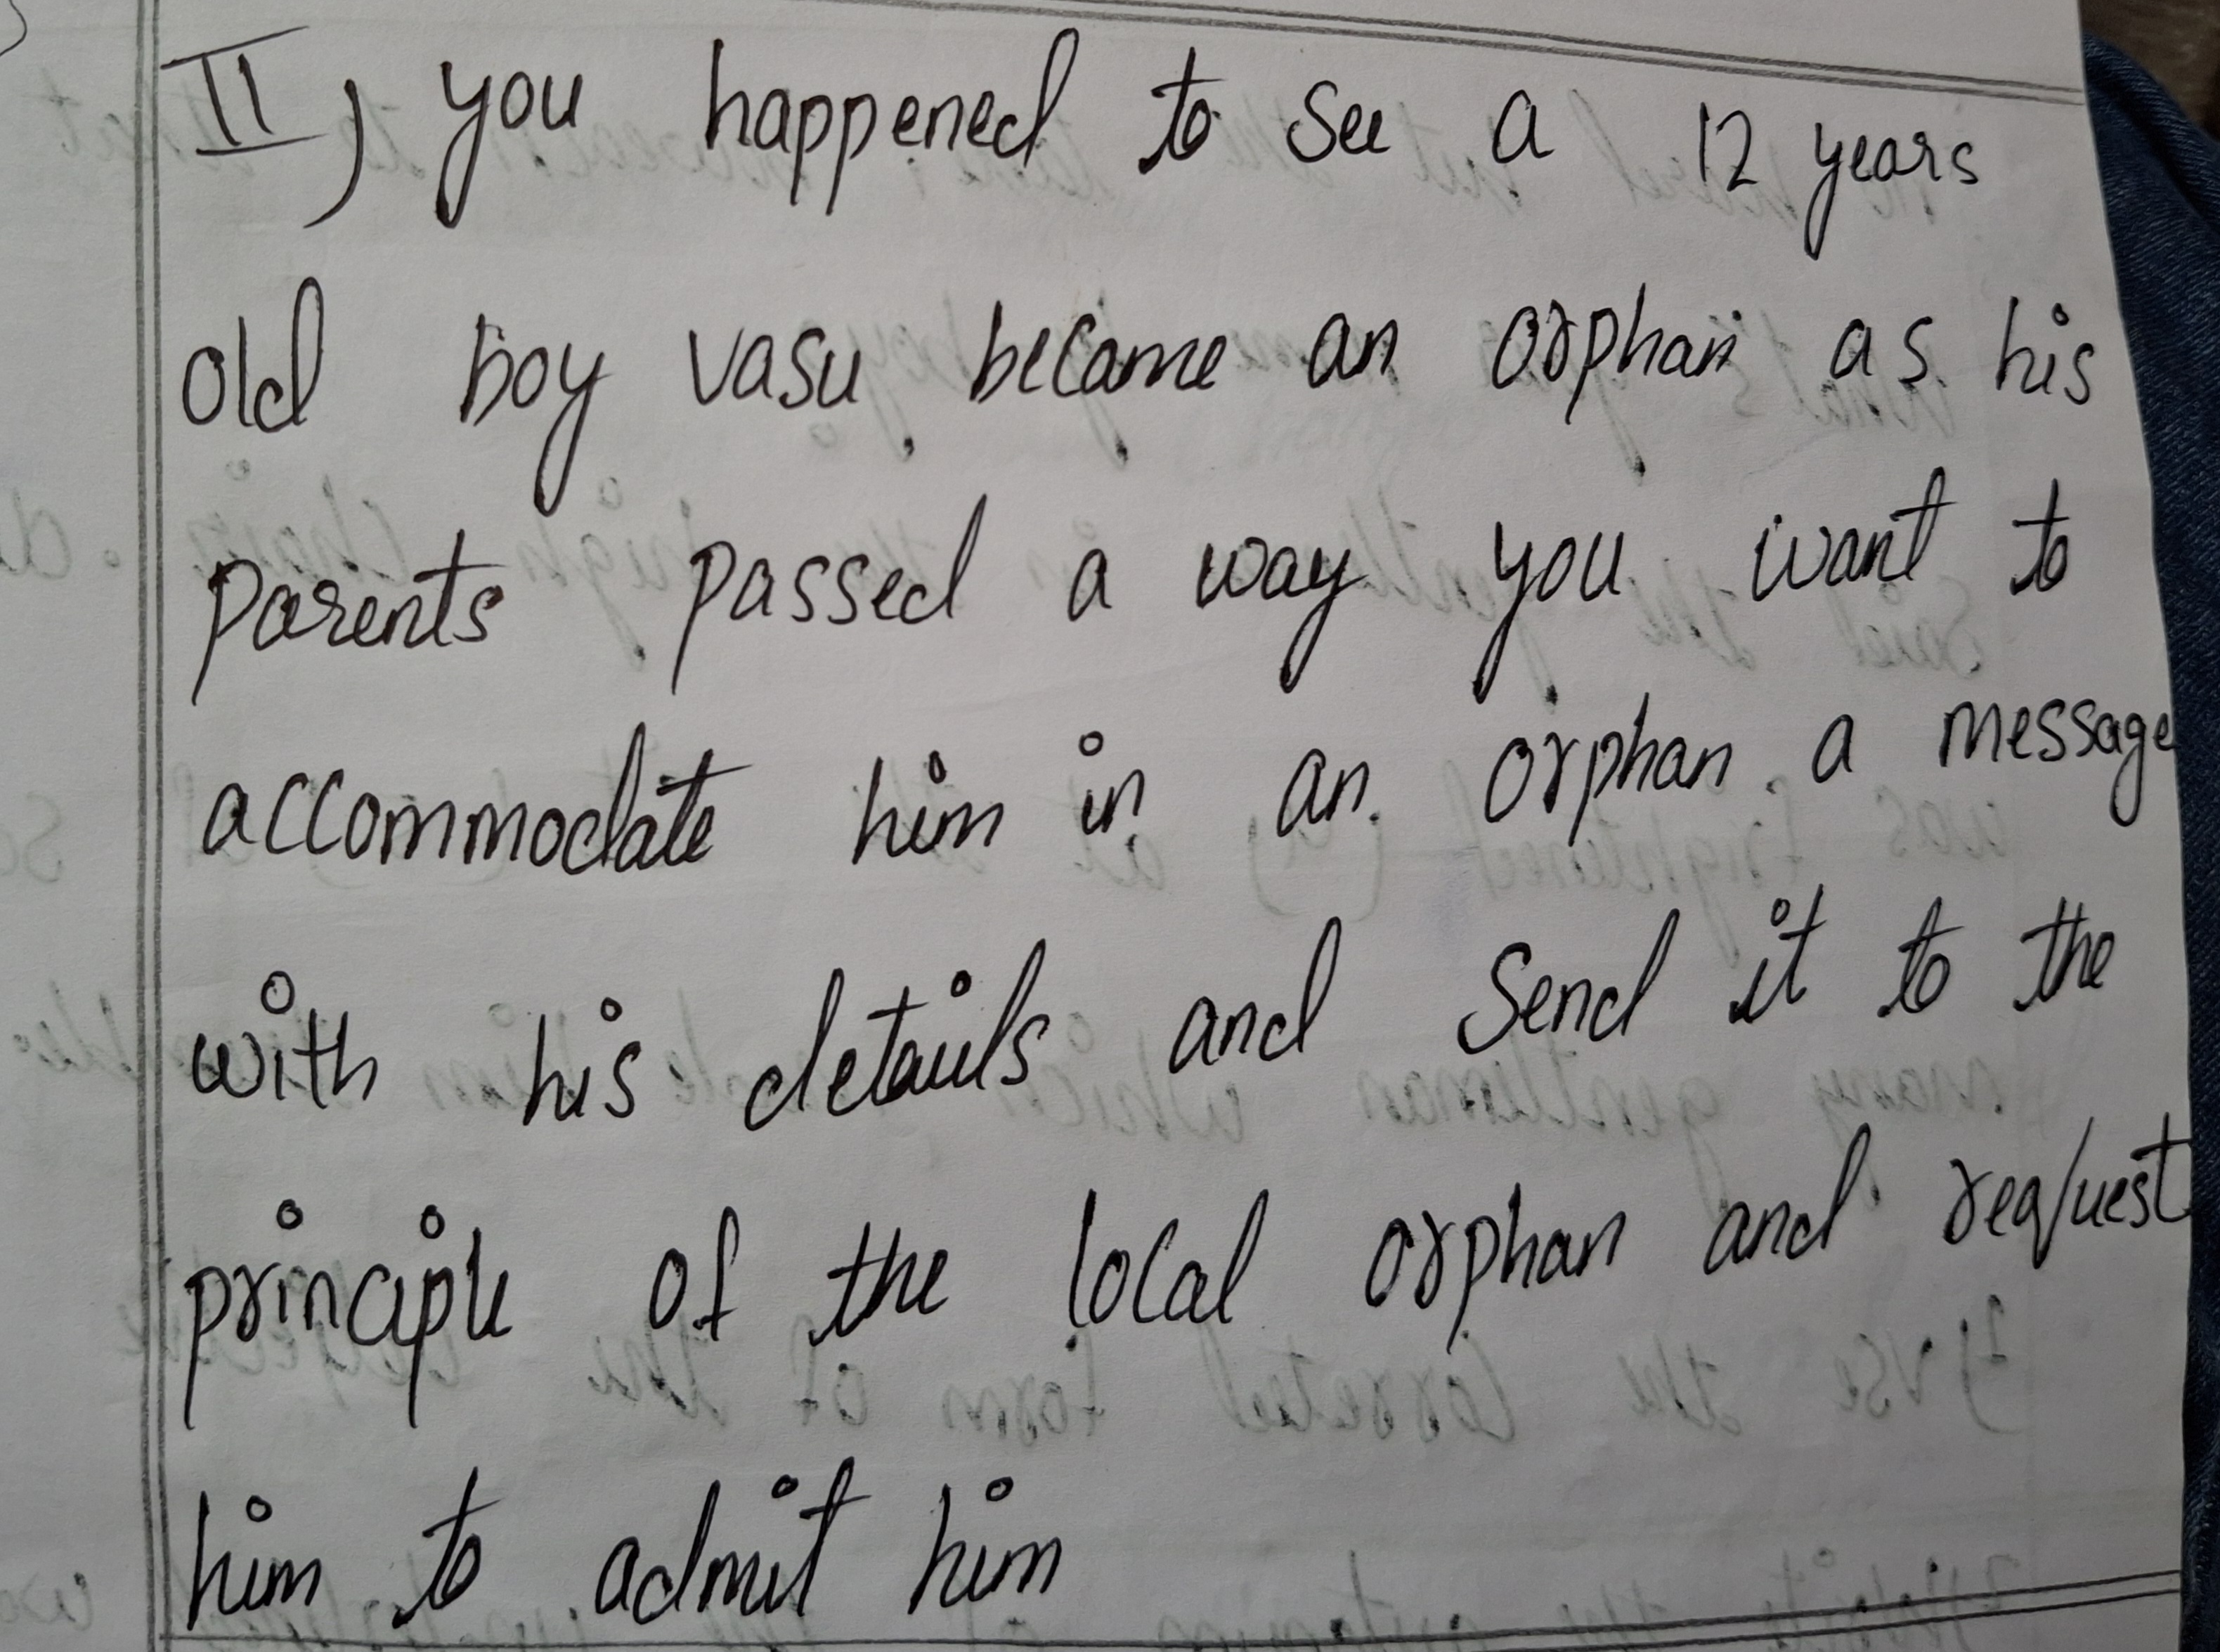 II) you happened to see a 12 years
old boy vasu became an orphan as his
parents passed a way you want to
accommodate him in an orphan a message
with his details and send it to the
principle of the local orphan and request
him to admit him